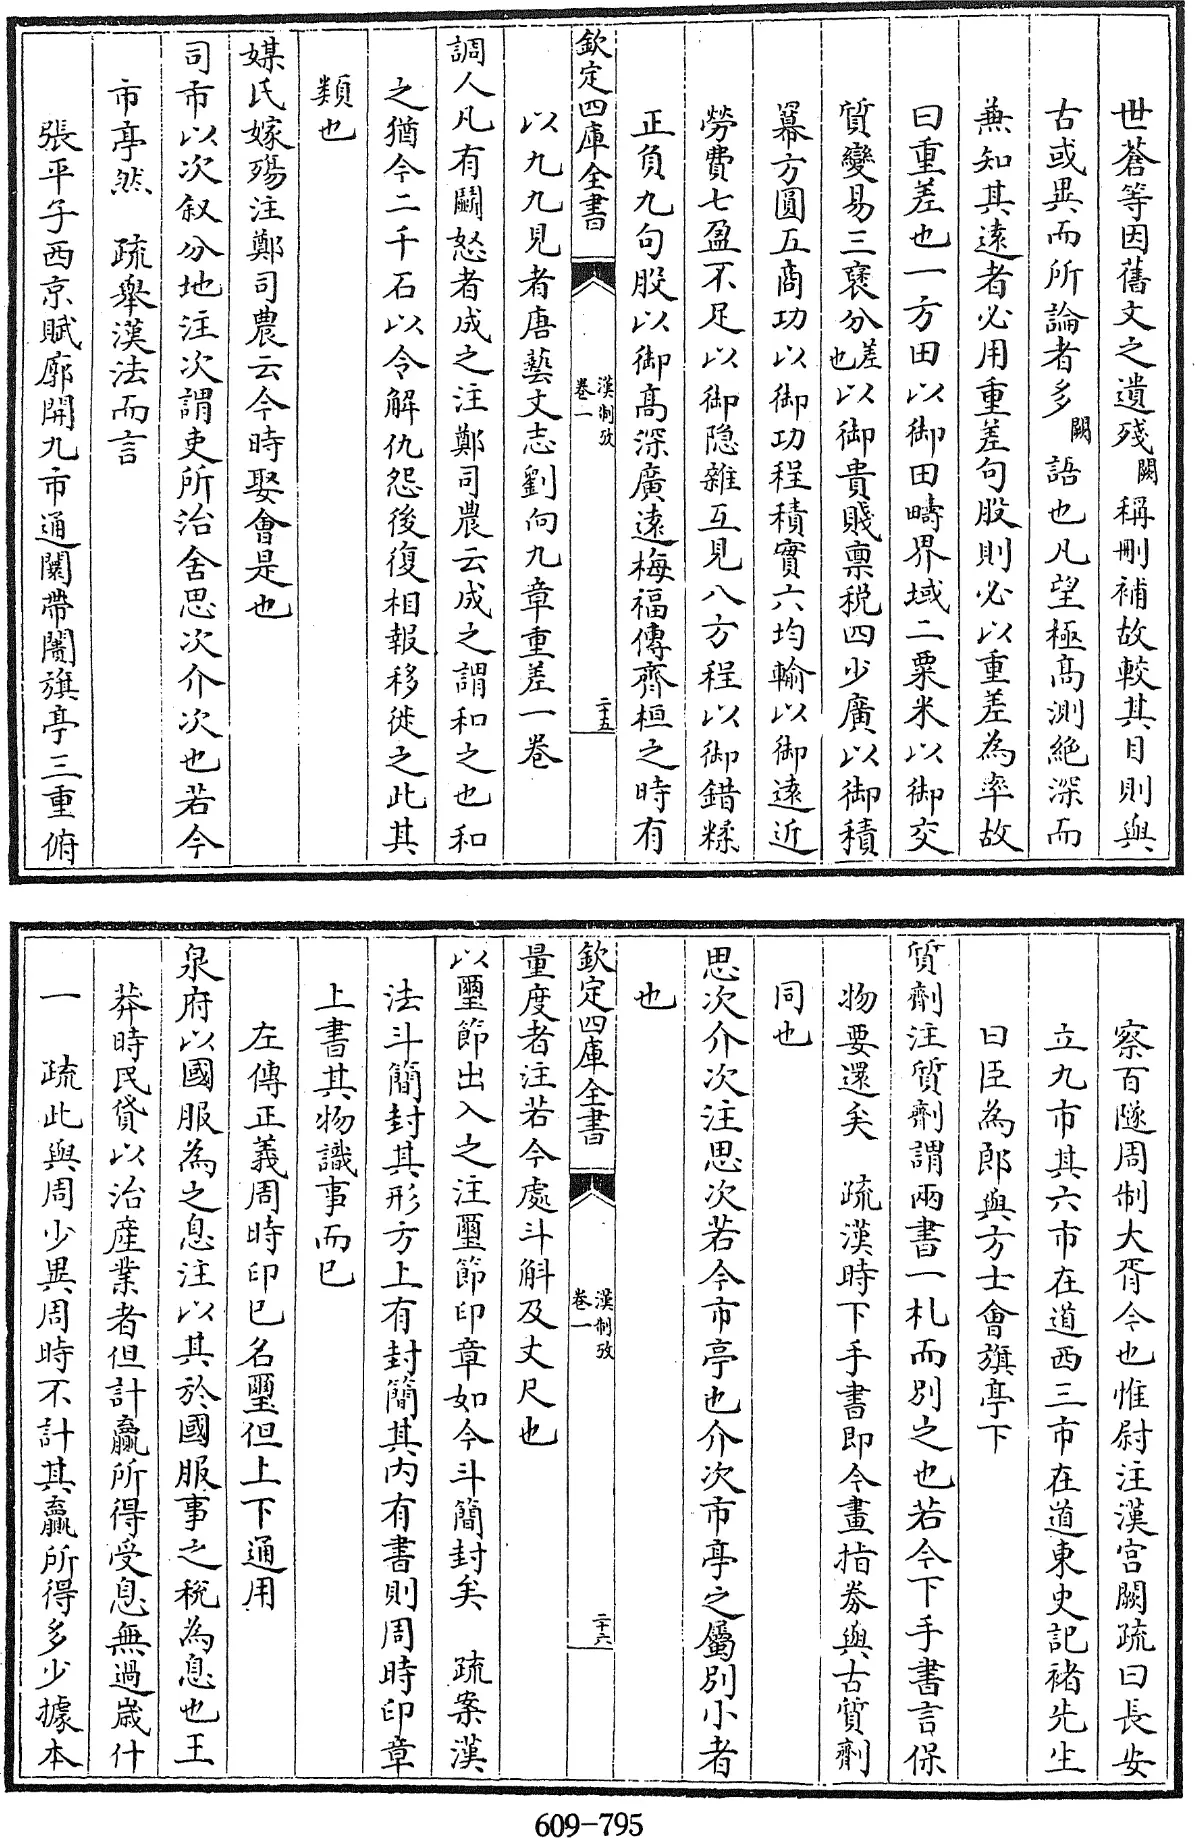 世蒼等因舊文之遺殘闕稱刪補故較其目則與
古或異而所論者多闕語也凡望極高測絶深而
兼知其遠者必用重差句股則必以重差為率故
曰重差也一方田以御田疇界域二粟米以御交
質變易三衰分差也以御貴賤禀税四少廣以御積
冪方圓五商功以御功程積實六均輸以御遠近
勞費七盈不足以御隐雜互見八方程以御錯糅
正負九句股以御高深廣遠梅福傳齊桓之時有
欽定四庫全書
漢制攷
卷一
二十五
以九九見者唐藝文志劉向九章重差一卷
調人凡有鬭怒者成之注鄭司農云成之謂和之也和
之猶今二千石以令解仇怨後復相報移徙之此其
類也
媒氏嫁殤注鄭司農云今時娶會是也
司市以次叙分地注次謂吏所治舍思次介次也若今
市亭然　疏舉漢法而言
張平子西京賦廓開九市通闤帶闠旗亭三重俯
察百隧周制大胥今也惟尉注漢宫闕疏曰長安
立九市其六市在道西三市在道東史記褚先生
曰臣為郎與方士會旗亭下
質劑注質劑謂兩書一札而别之也若今下手書言保
物要還矣　疏漢時下手書即今畫指劵與古質劑
同也
思次介次注思次若今市亭也介次市亭之屬别小者
也
欽定四庫全書
漢制攷
卷一
二十六
量度者注若今處斗斛及丈尺也
以璽節出入之注璽節印章如今斗簡封矣　疏案漢
法斗簡封其形方上有封簡其内有書則周時印章
上書其物識事而已
左傳正義周時印已名璽但上下通用
泉府以國服為之息注以其於國服事之税為息也王
莽時民貸以治産業者但計贏所得受息無過嵗什
一　疏此與周少異周時不計其贏所得多少據本
609-795